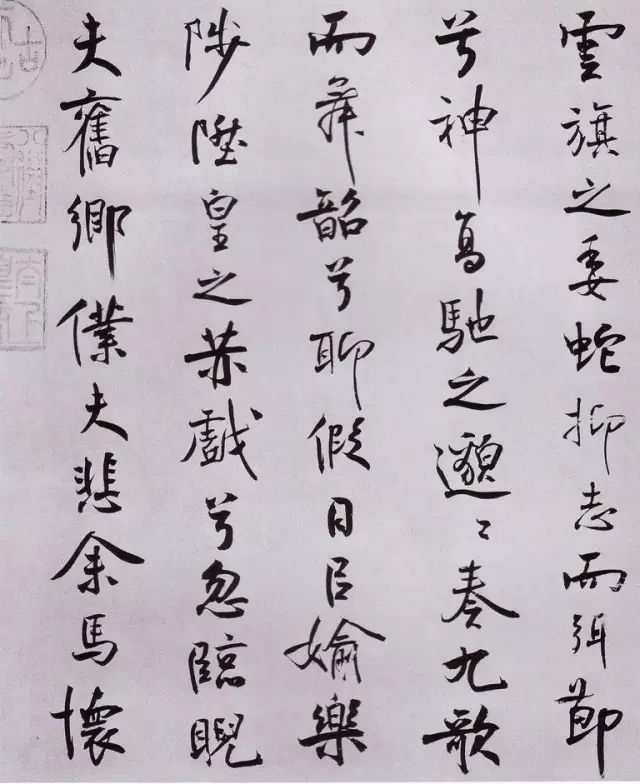 雲旗之委蛇抑志而弭節
兮神高馳之邈〻奏九歌
而舞韶兮聊假日以媮樂
陟陞皇之赫戲兮忽臨睨
夫舊鄉僕夫悲余馬懷